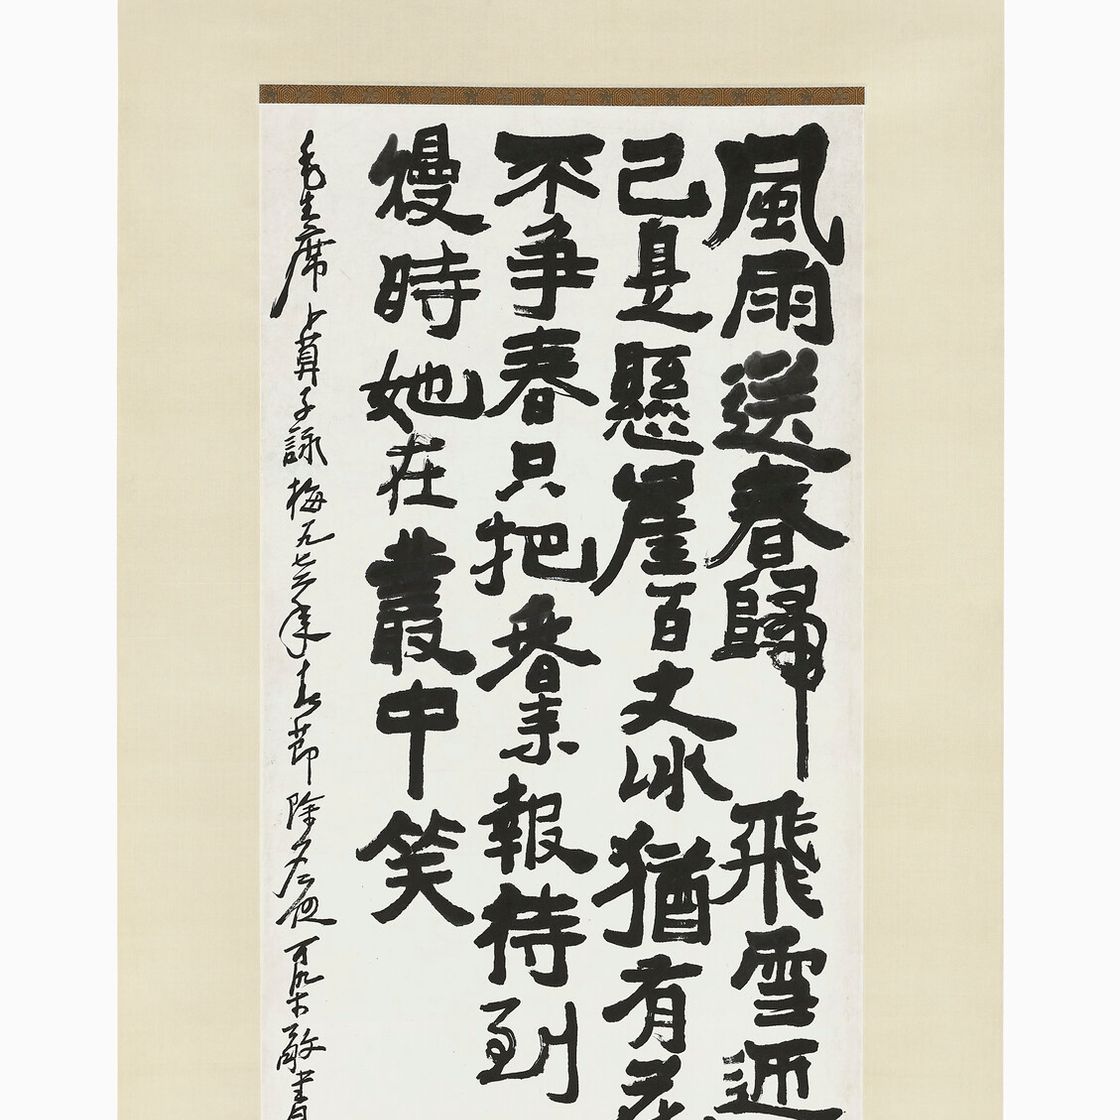 風雨送春歸飛雪迎
已是懸崖百丈冰猶有花
不争春只把春來報待到
熳時她在叢中笑
毛主席卜算子詠梅一九七六年春節除夕之夜可染敬書